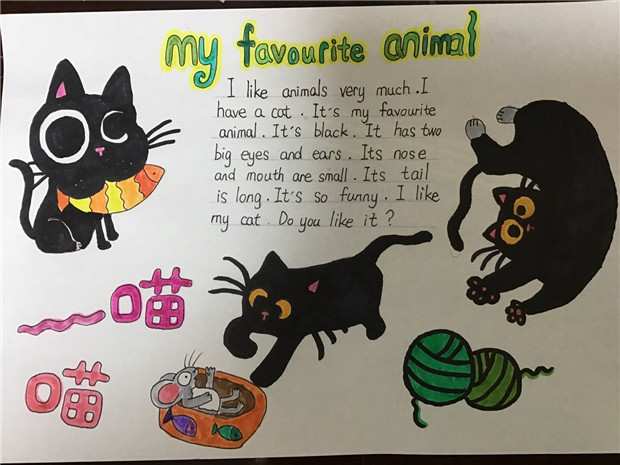 my favourite animal
I like animals very much. I
have a cat. It's my favourite
animal. It's black. It has two
big eyes and ears. Its nose
and mouth are small. Its tail
is long. It's so funny. I like
my cat. Do you like it?
喵
喵